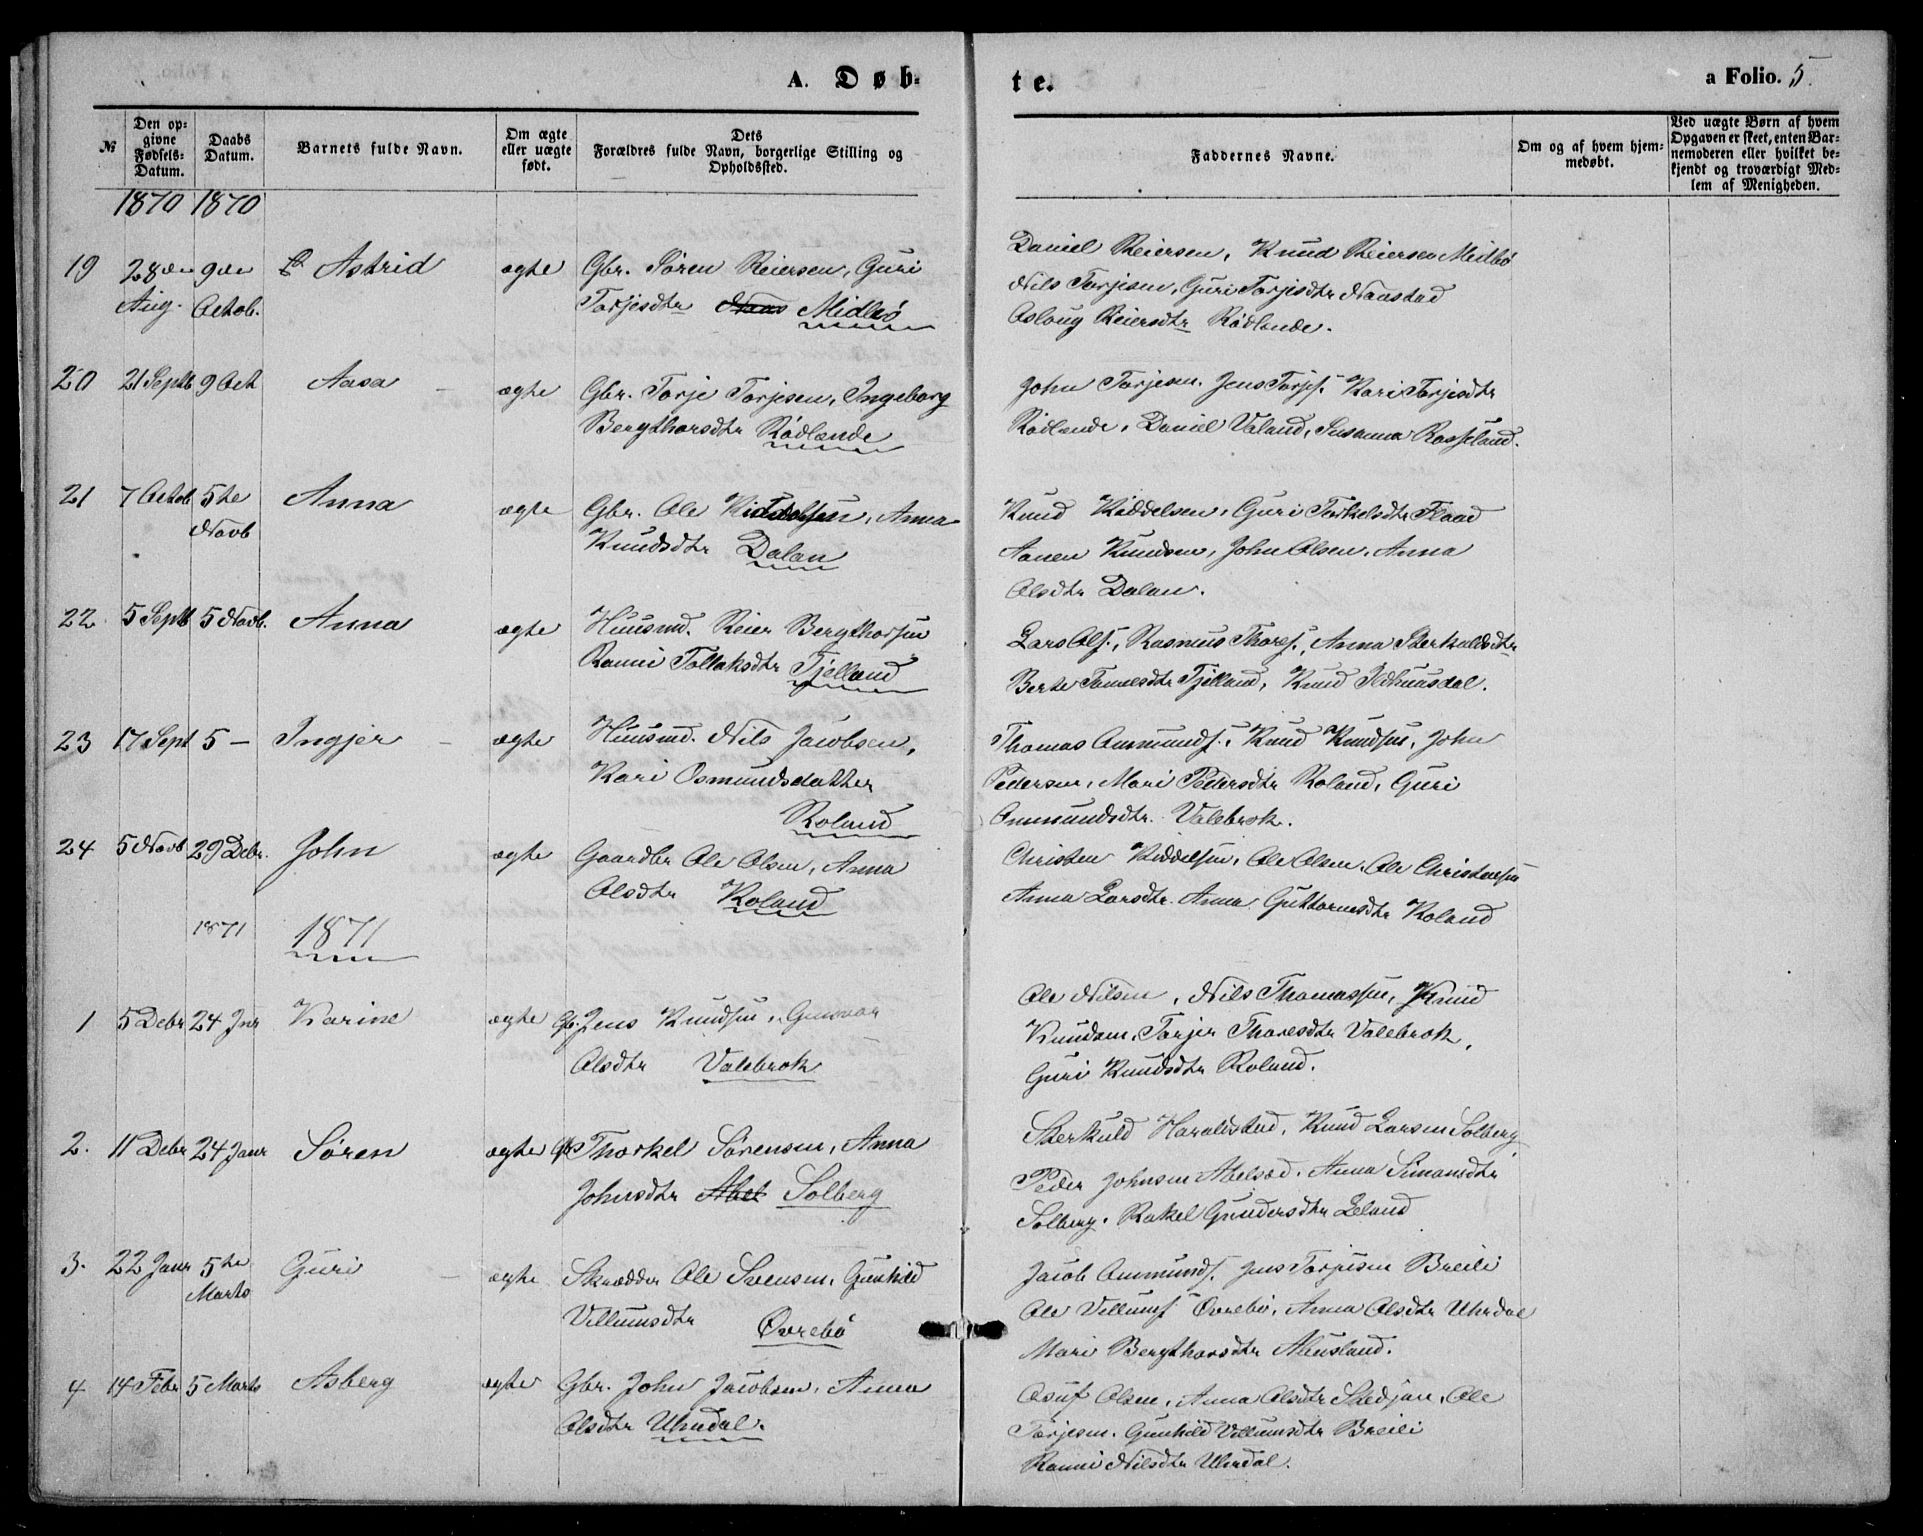 A. Døb-
te.
a Folio. 5.
№
Den op-
givne
Fødsels-
Datum.
Daabs
Datum.
Barnets fulde Navn.
Om ægte
eller uægte
født.
Dets
Forældres fulde Navn, borgerlige Stilling og
Opholdssted.
Faddernes Navne.
Om og af hvem hjem-
medøbt.
Ved uægte Børn af hvem
Opgaven er skeet, enten Bar-
nemoderen eller hvilket be-
kjendt og troværdigt Med-
lem af Menigheden.
1870 1870
19 28de 9de Astrid ægte Gbr. Sören Reiersen, Guri
Aug. Octob. Torjesdtr Midbö
Daniel Reiersen, Knud Reiersen Midbö
Nils Torjesen, Guri Torjesdtr Naustad
Aslaug Reiersdtr Rödlande.
20 21 Septb 9 Oct Aasa ægte Gbr. Torje Torjesen, Ingeborg
Bergthorsdtr Rödlande
John Torjesen, Jens Torjs. Kari Torjesdtr
Rödlande, Daniel Valand, Susanna Rosseland.
21 7 Octob 5te Anna ægte Gbr. Ole Kiddelsen, Anna
Novb Knudsdtr Dalan
Knud Kiddelsen, Guri Torkelsdtr Flaad
Aanen Knudsen, John Olsen, Anna
Olsdtr Dalan.
22 5 Septb 5 Novb. Anna ægte Huusmd. Reier Bergthorsen
Ranni Tollaksdtr Tjelland
Lars Ols., Rasmus Thores., Anna Sterkuldsdtr
Berte Tomesdtr Tjelland, Knud
23 17 Sept 5 — Ingjer ægte Huusmd. Nils Jacobsen,
Kari Osmundsdatter
Roland
Thomas Ommunds., Knud Knudsen, John
Pedersen, Mari Pedersdtr Roland, Guri
Ommundsdtr. Valebrok.
24 5 Novb 29 Debr. John ægte Gaardbr Ole Olsen, Anna
Olsdtr Roland
Christen Kiddelsen, Ole Olsen, Ole Christensen
Anna Larsdtr. Anna Guttormsdtr Roland
1871 1871
1 5 Debr 24 Jnr Karine ægte Gbr Jens Knudsen, Gunvor
Olsdtr Valebrok
Ole Nilsen, Nils Thomassen, Knud
Knudsen, Torjer Thoresdtr Valebrok,
Guri Knudsdtr Roland.
2. 11 Debr 24 Janr Sören ægte Gbr Thorkel Sörensen, Anna
Johnsdtr Abel Solberg
Sterkuld Haraldstad, Knud Larsen Solberg
Peder Johnsen Abelsed, Anna Simonsdtr
Solberg, Rakel Gundersdtr Eeland
3. 22 Janr 5te Guri ægte Skrædder Ole Svensen, Gunhild
Marts Villumsdtr Övrebö
Jacob Ommunds. Jens Torjesen Breili
Ole Villums Övrebö, Anna Olsdtr Uhrdal
Mari Bergthorsdtr Homsland.
4 14 Febr 5 Marts Asberg ægte Gbr. John Jacobsen, Anna
Olsdtr Uhrdal.
Osuf Olsen, Anna Olsdtr Stedjan, Ole
Torjesen, Gunhild Villumsdtr Breili
Ranni Nilsdtr Uhrdal.